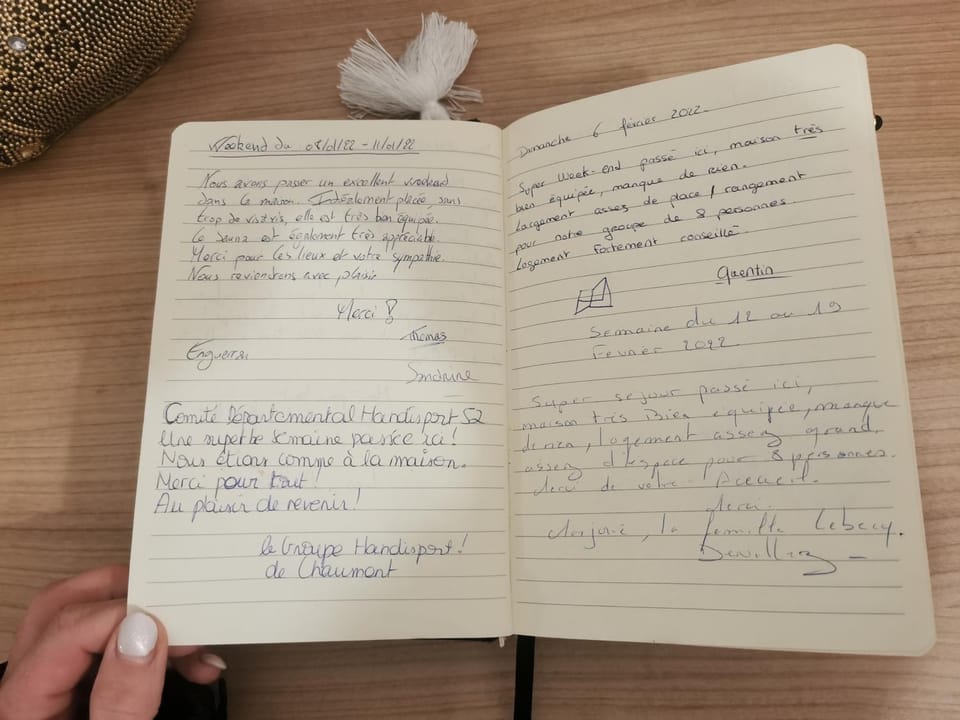 Weekend du 08/01/22 - 11/01/22
Nous avons passer un excellent weekend
dans la maison. Idéalement placée, sans
trop de vis à vis, elle est très bien équipée.
Le sauna est également très appréciable.
Merci pour les lieux et votre sympathie.
Nous reviendrons avec plaisir
Merci !
Thomas
Enguerran
Sandrine
Comité Départemental Handisport 52
Une superbe semaine passée ici !
Nous étions comme à la maison.
Merci pour tout !
Au plaisir de revenir !
le Groupe Handisport !
de Chaumont
Dimanche 6 février 2022.
Super Week-end passé ici, maison très
bien équipée, manque de rien.
Largement assez de place / rangement
pour notre groupe de 8 personnes.
Logement fortement conseillé.
Quentin
Semaine du 12 au 19
Fevrier 2022.
Super sejour passé ici,
maison très Bien equipée, manque
de rien, logement assez grand,
assez d'espace pour 8 personnes.
Merci de votre Acceuil.
Merci.
la famille